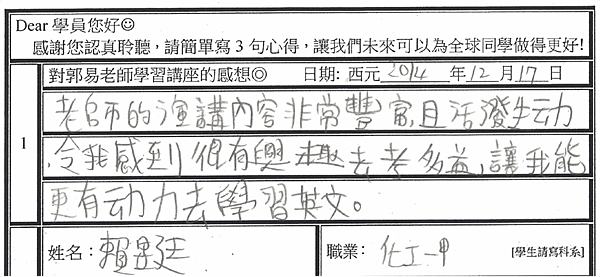 Dear 學員您好☺
感謝您認真聆聽，請簡單寫 3 句心得，讓我們未來可以為全球同學做得更好!
對郭易老師學習講座的感想◎ 日期: 西元 2014 年 12 月 17 日
1
老師的演講內容非常豐富,且活潑生动
令我感到很有興趣去考多益,讓我能
更有动力去學習英文。
姓名：賴昱廷 職業：化工一甲 [學生請寫科系]